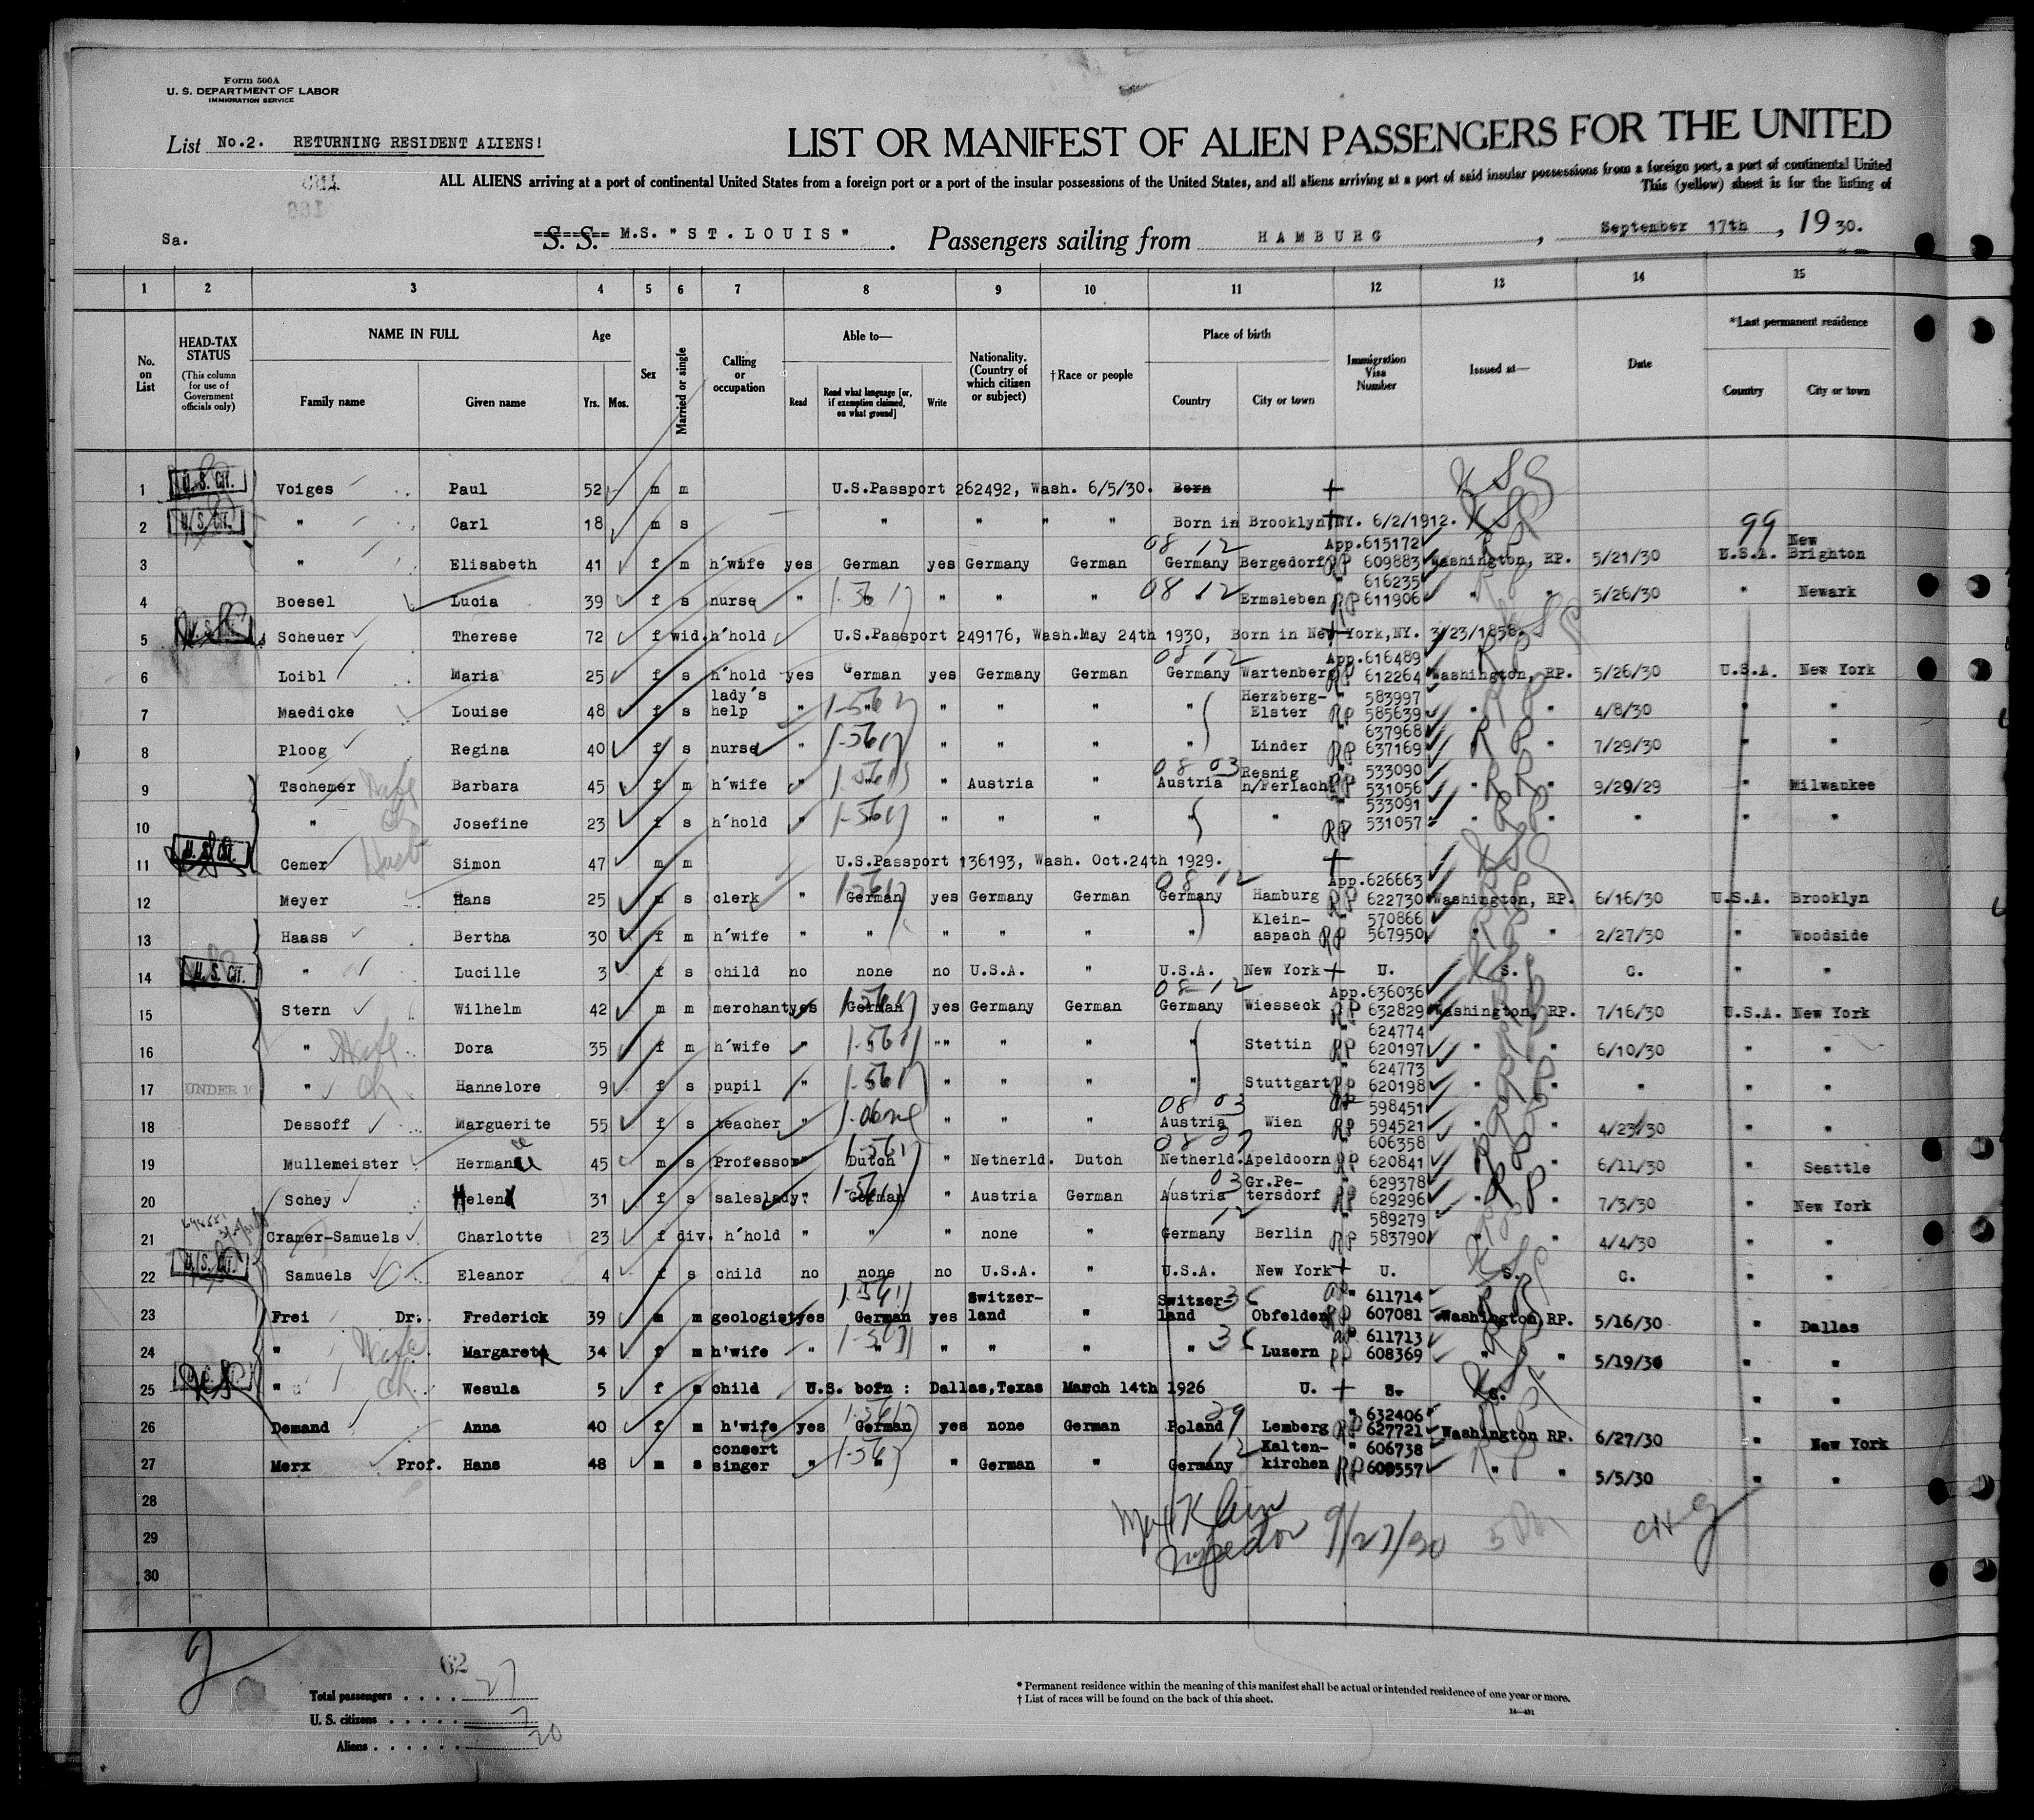 Form 500A
U. S. DEPARTMENT OF LABOR
IMMIGRATION SERVICE
List No.2. RETURNING RESIDENT ALIENS!
LIST OR MANIFEST OF ALIEN PASSENGERS FOR THE UNITED
ALL ALIENS arriving at a port of continental United States from a foreign port or a port of the insular possessions of the United States, and all aliens arriving at a port of said insular possessions from a foreign port, a port of continental United
This (yellow) sheet is for the listing of
Sa. S. S. M.S. "ST.LOUIS". Passengers sailing from HAMBURG, September 17th, 1930.
1 2 3 4 5 6 7 8 9 10 11 12 13 14 15
No. on List
HEAD-TAX STATUS (This column for use of Government officials only)
NAME IN FULL
Family name Given name
Age
Yrs. Mos.
Sex
Married or single
Calling or occupation
Able to—
Read Read what language [or, if exemption claimed, on what ground] Write
Nationality. (Country of which citizen or subject)
†Race or people
Place of birth
Country City or town
Immigration Visa Number
Issued at—
Date
*Last permanent residence
Country City or town
1 U. S. CIT. Voiges Paul 52 m m U.S.Passport 262492, Wash. 6/5/30. Born
2 U. S. CIT. " Carl 18 m s " " " " Born in Brooklyn NY. 6/2/1912.
3 " Elisabeth 41 f m h'wife yes German yes Germany German 08 12 Germany Bergedorf App.615172 RP 609883 Washington, RP. 5/21/30 99 U.S.A. New Brighton
4 Boesel Lucia 39 f s nurse " " " " " 08 12 Ermsleben 616235 RP 611906 " " 5/26/30 " Newark
5 U. S. CIT. Scheuer Therese 72 f wid. h'hold U.S.Passport 249176, Wash.May 24th 1930, Born in New York,NY. 3/23/1858.
6 Loibl Maria 25 f s h'hold yes German yes Germany German 08 12 Germany Wartenberg App.616489 RP 612264 Washington, RP. 5/26/30 U.S.A. New York
7 Maedicke Louise 48 f s lady's help " " " " " " Herzberg-Elster " 583997 RP 585639 " " 4/8/30 " "
8 Ploog Regina 40 f s nurse " " " " " " Linder 637968 RP 637169 " " 7/29/30 " "
9 Tschemer Wife Barbara 45 f m h'wife " " " Austria " 08 03 Austria Resnig n/Ferlach 533090 RP 531056 " " 9/20/29 " Milwaukee
10 " Ch Josefine 23 f s h'hold " " " " " " " 533091 RP 531057 " " " " "
11 U. S. CIT. Cemer Husb Simon 47 m m U.S.Passport 136193, Wash. Oct.24th 1929.
12 Meyer Hans 25 m s clerk " German yes Germany German 08 12 Germany Hamburg App.626663 RP 622730 Washington, RP. 6/16/30 U.S.A. Brooklyn
13 Haass Bertha 30 f m h'wife " " " " " " Klein-aspach 570866 RP 567950 " " 2/27/30 " Woodside
14 U. S. CIT. " Lucille 3 f s child no none no U.S.A. U.S.A. New York U. S. C. " "
15 Stern Wilhelm 42 m m merchant yes German yes Germany German 08 12 Germany Wiesseck App.636036 RP 632829 Washington, RP. 7/16/30 U.S.A. New York
16 " Wife Dora 35 f m h'wife " " "" " " " Stettin 624774 RP 620197 " " 6/10/30 " "
17 UNDER 16 " Ch Hannelore 9 f s pupil " " " " " " Stuttgart 624773 RP 620198 " " " " "
18 Dessoff Marguerite 55 f s teacher " " " " 08 03 Austria Wien 598451 RP 594521 " " 4/23/30 " "
19 Mullemeister Herman 45 m s Professor " Dutch " Netherld. Dutch Netherld. Apeldoorn 606358 RP 620841 " " 6/11/30 " Seattle
20 Schey Helen 31 f s saleslady " German " Austria German 03 Austria Gr.Pe-tersdorf " 629378 RP 629296 " " 7/3/30 " New York
21 Cramer-Samuels Charlotte 23 f div. h'hold " " " none " 12 Germany Berlin 589279 RP 583790 " " 4/4/30 " "
22 U. S. CIT. Samuels Eleanor 4 f s child no none no U.S.A. " U.S.A. New York U. S. C. " "
23 Frei Dr. Frederick 39 m m geologist yes German yes Switzer-land " Switzer-land Obfelden " 611714 RP 607081 Washington, RP. 5/16/30 " Dallas
24 " Wife Margaret 34 f m h'wife " " " " " " Luzern " 611713 RP 608369 " " 5/19/30 " "
25 " Ch Wesula 5 f s child U.S. born : Dallas,Texas March 14th 1926 U. S. S. " "
26 Demand Anna 40 f m h'wife yes German yes none German Poland Lemberg " 632406 RP 627721 Washington RP. 6/27/30 " New York
27 Merx Prof. Hans 48 m s consert singer " " " German " 12 Germany Kalten-kirchen " 606738 RP 600557 " " 5/5/30 " "
28
29
30
Inspector 9/27/30
2
62
Total passengers . . . . 27
U. S. citizens . . . . . 7
Aliens . . . . . . 20
* Permanent residence within the meaning of this manifest shall be actual or intended residence of one year or more.
† List of races will be found on the back of this sheet.